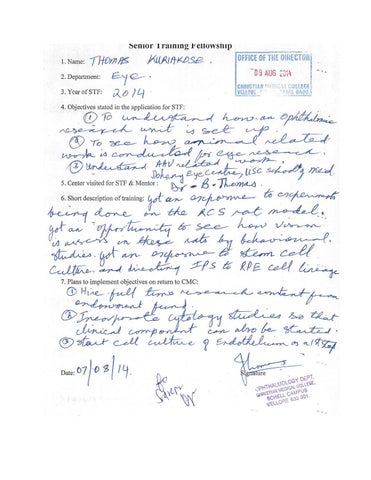 Senior Training Fellowship
1. Name: THOMAS KURIAKOSE.
OFFICE OF THE DIRECTOR
09 AUG 2014
CHRISTIAN MEDICAL COLLEGE
VELLORE
2. Department: Eye.
3. Year of STF: 2014
4. Objectives stated in the application for STF:
① To understand how an Ophthalmic
research unit is set up.
② To see how animal related
work is conducted for eye research.
③ Understand AAV related work.
Doheny Eye Centre, USC school of Med.
5. Center visited for STF & Mentor: Dr - B - Thomas.
6. Short description of training: Got an exposure to experiments
being done on the RCS rat model.
Got an opportunity to see how vision
is assess in these rats by behavioural
studies. Got an exposure to stem cell
Culture and directing IPS to RPE cell lineage
7. Plans to implement objectives on return to CMC:
① Hire full time research from
endowment fund.
② Incorporate cytology studies so that
clinical component can also be started.
③ Start cell culture of Endothelium as a 1st step
Date: 07/08/14.
Signature
OPHTHALMOLOGY DEPT.
CHRISTIAN MEDICAL COLLEGE,
SCHELL CAMPUS
VELLORE 632 001.